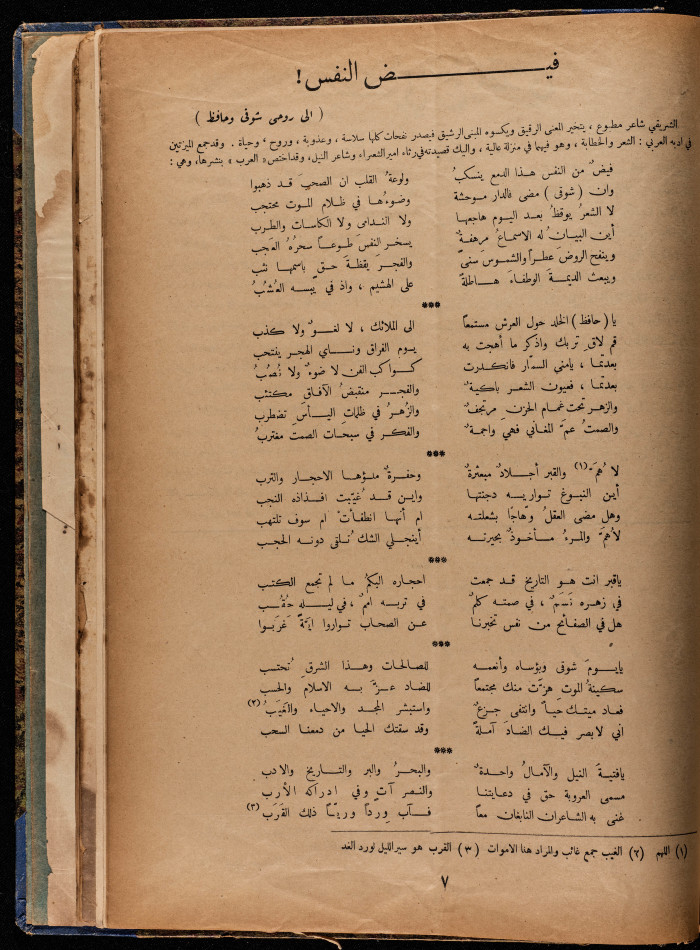 فيـــض النفس!
( الى روحى شوقى وحافظ )
الشريقي شاعر مطبوع ، يتخير المعنى الرقيق ويكسوه المبنى الرشيق فيصدر نفحات كلها سلاسة ، وعذوبة ، وروح ، وحياة . وقد جمع الميزتين
في ادبه العربي : الشعر والخطابة ، وهو فيهما في منزلة عالية ، واليك قصيدته في رثاء امير الشعراء وشاعر النيل، وقد اختص « العرب » بنشرها، وهي :
فيضٌ من النفس هذا الدمع ينسكبُ ولوعةُ القلب ان الصحبَ قد ذهبوا
وان ( شوقى ) مضى فالدار موحشة وضوءُها في ظلام الموت محتجب
لا الشعرُ يوقظُ بعد اليوم هاجعها ولا الندامى ولا الكاسات والطرب
أين البيانُ له الاسماعُ مرهفةٌ يسخر النفسَ طوعاً سحرُهُ العجب
وينفح الروضَ عطراً والشموسَ سنىً والفجر يقظةَ حقٍ باسمها نثب
ويبعث الديمةَ الوطفاءَ هاطلةً على الهشيم ، واذ في يبسه العُشُبُ
***
يا ( حافظ ) الخلد حول العرش مستمعاً الى الملائك ، لا لغوٌ ولا كذب
قم لاقِ تربك واذكر ما أهجت به يوم الفراق وناي الهجر ينتحب
بعدتما ، يامنى السمّار فانكدرت كواكب الفن لا ضوءٌ ولا نُصُبُ
بعدتما ، فعيون الشعر باكيةٌ والفجر منقبضُ الآفاقِ مكتئب
والزهر تحت غمام الحزن مرتجفٌ والزُهرُ في ظلمات اليأس تضطرب
والصمتُ عمّ المغاني فهي واجمةٌ والفكر في سبحات الصمت مغتربُ
***
لا هُمَّ (١) والقبر أجلادٌ مبعثرةٌ وحفرةٌ ملؤها الاحجار والترب
أين النبوغ تواريه دجنتها واين قد غيّبت افذاذه النجب
وهل مضى العقلُ وهّاجًا بشعلته ام أنها انطفأتْ ام سوف تلتهب
لاهمَّ والمرءُ مأخوذٌ بحيرته أينجلي الشك تُلقى دونه الحجب
***
ياقبر انت هو التاريخ قد جمعت احجاره اليكمُ ما لم تجمع الكتب
في زهره نَسَمٌ ، في صمته كلمٌ في تربه اممٌ ، في ليله حُقُب
هل في الصفائح من نفس تخبرنا عن الصحاب تواروا ايّةً غربوا
***
يايوم شوقى وبؤساه وأنعمه للصالحات وهذا الشرق تُحتسب
سكينةُ الموت هزّت منك مجتمعاً للضاد عزّ به الاسلام والحسب
فعاد ميتك حياً وانتفى جزعٌ واستبشر المجد والاحياء والغَيَبُ (٢)
اني لابصر فيك الضادَ آملةً وقد سقتك الحيا من دمعنا السحب
***
يافتيةَ النيل والآمالُ واحدةٌ والبحرُ والبر والتاريخ والادب
مسعى العروبة حق في دعايتنا والنصر آتٍ وفي ادراكه الأرب
غنى به الشاعران النابغان معاً فآب وِرداً وريّاً ذلك القَرَب (٣)
(١) اللهم (٢) الغيب جمع غائب والمراد هنا الاموات (٣) القرب هو سير الليل لورد الغد
٧